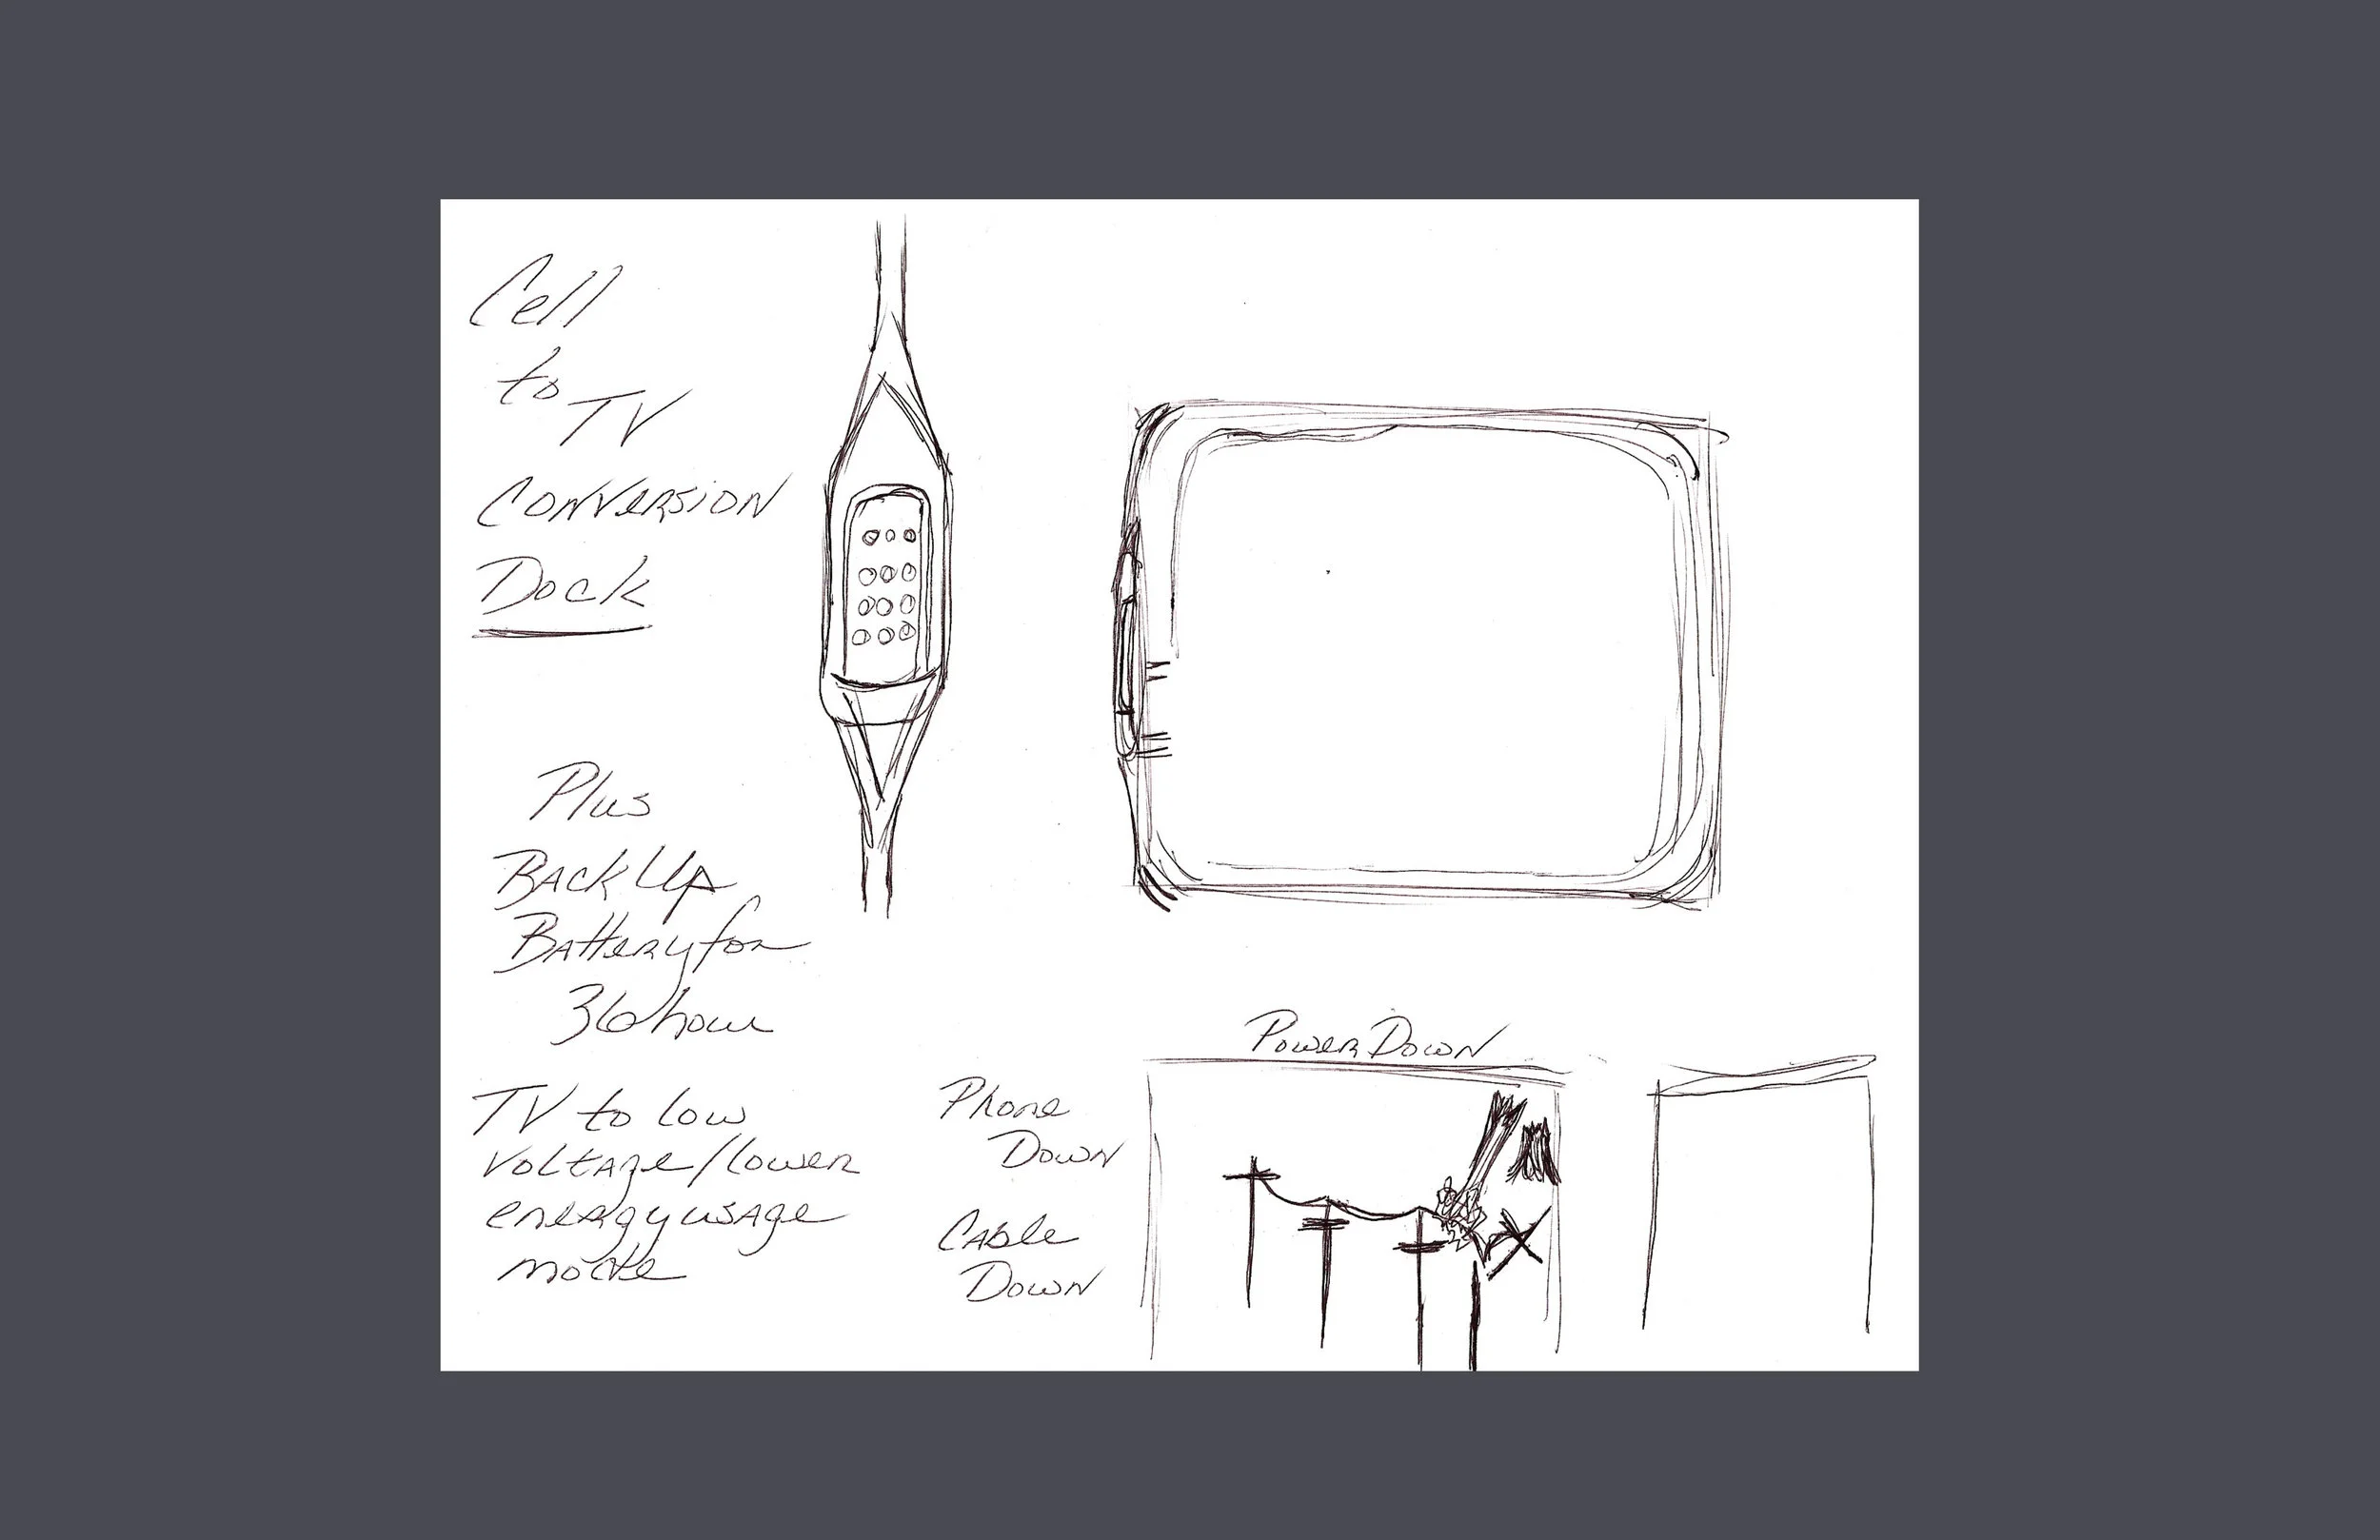 Cell
to
TV
Conversion
Dock
Plus
Back Up
Battery for
36 hour
TV to low
voltage/lower
energy usage
mode
Power Down
Phone
Down
Cable
Down